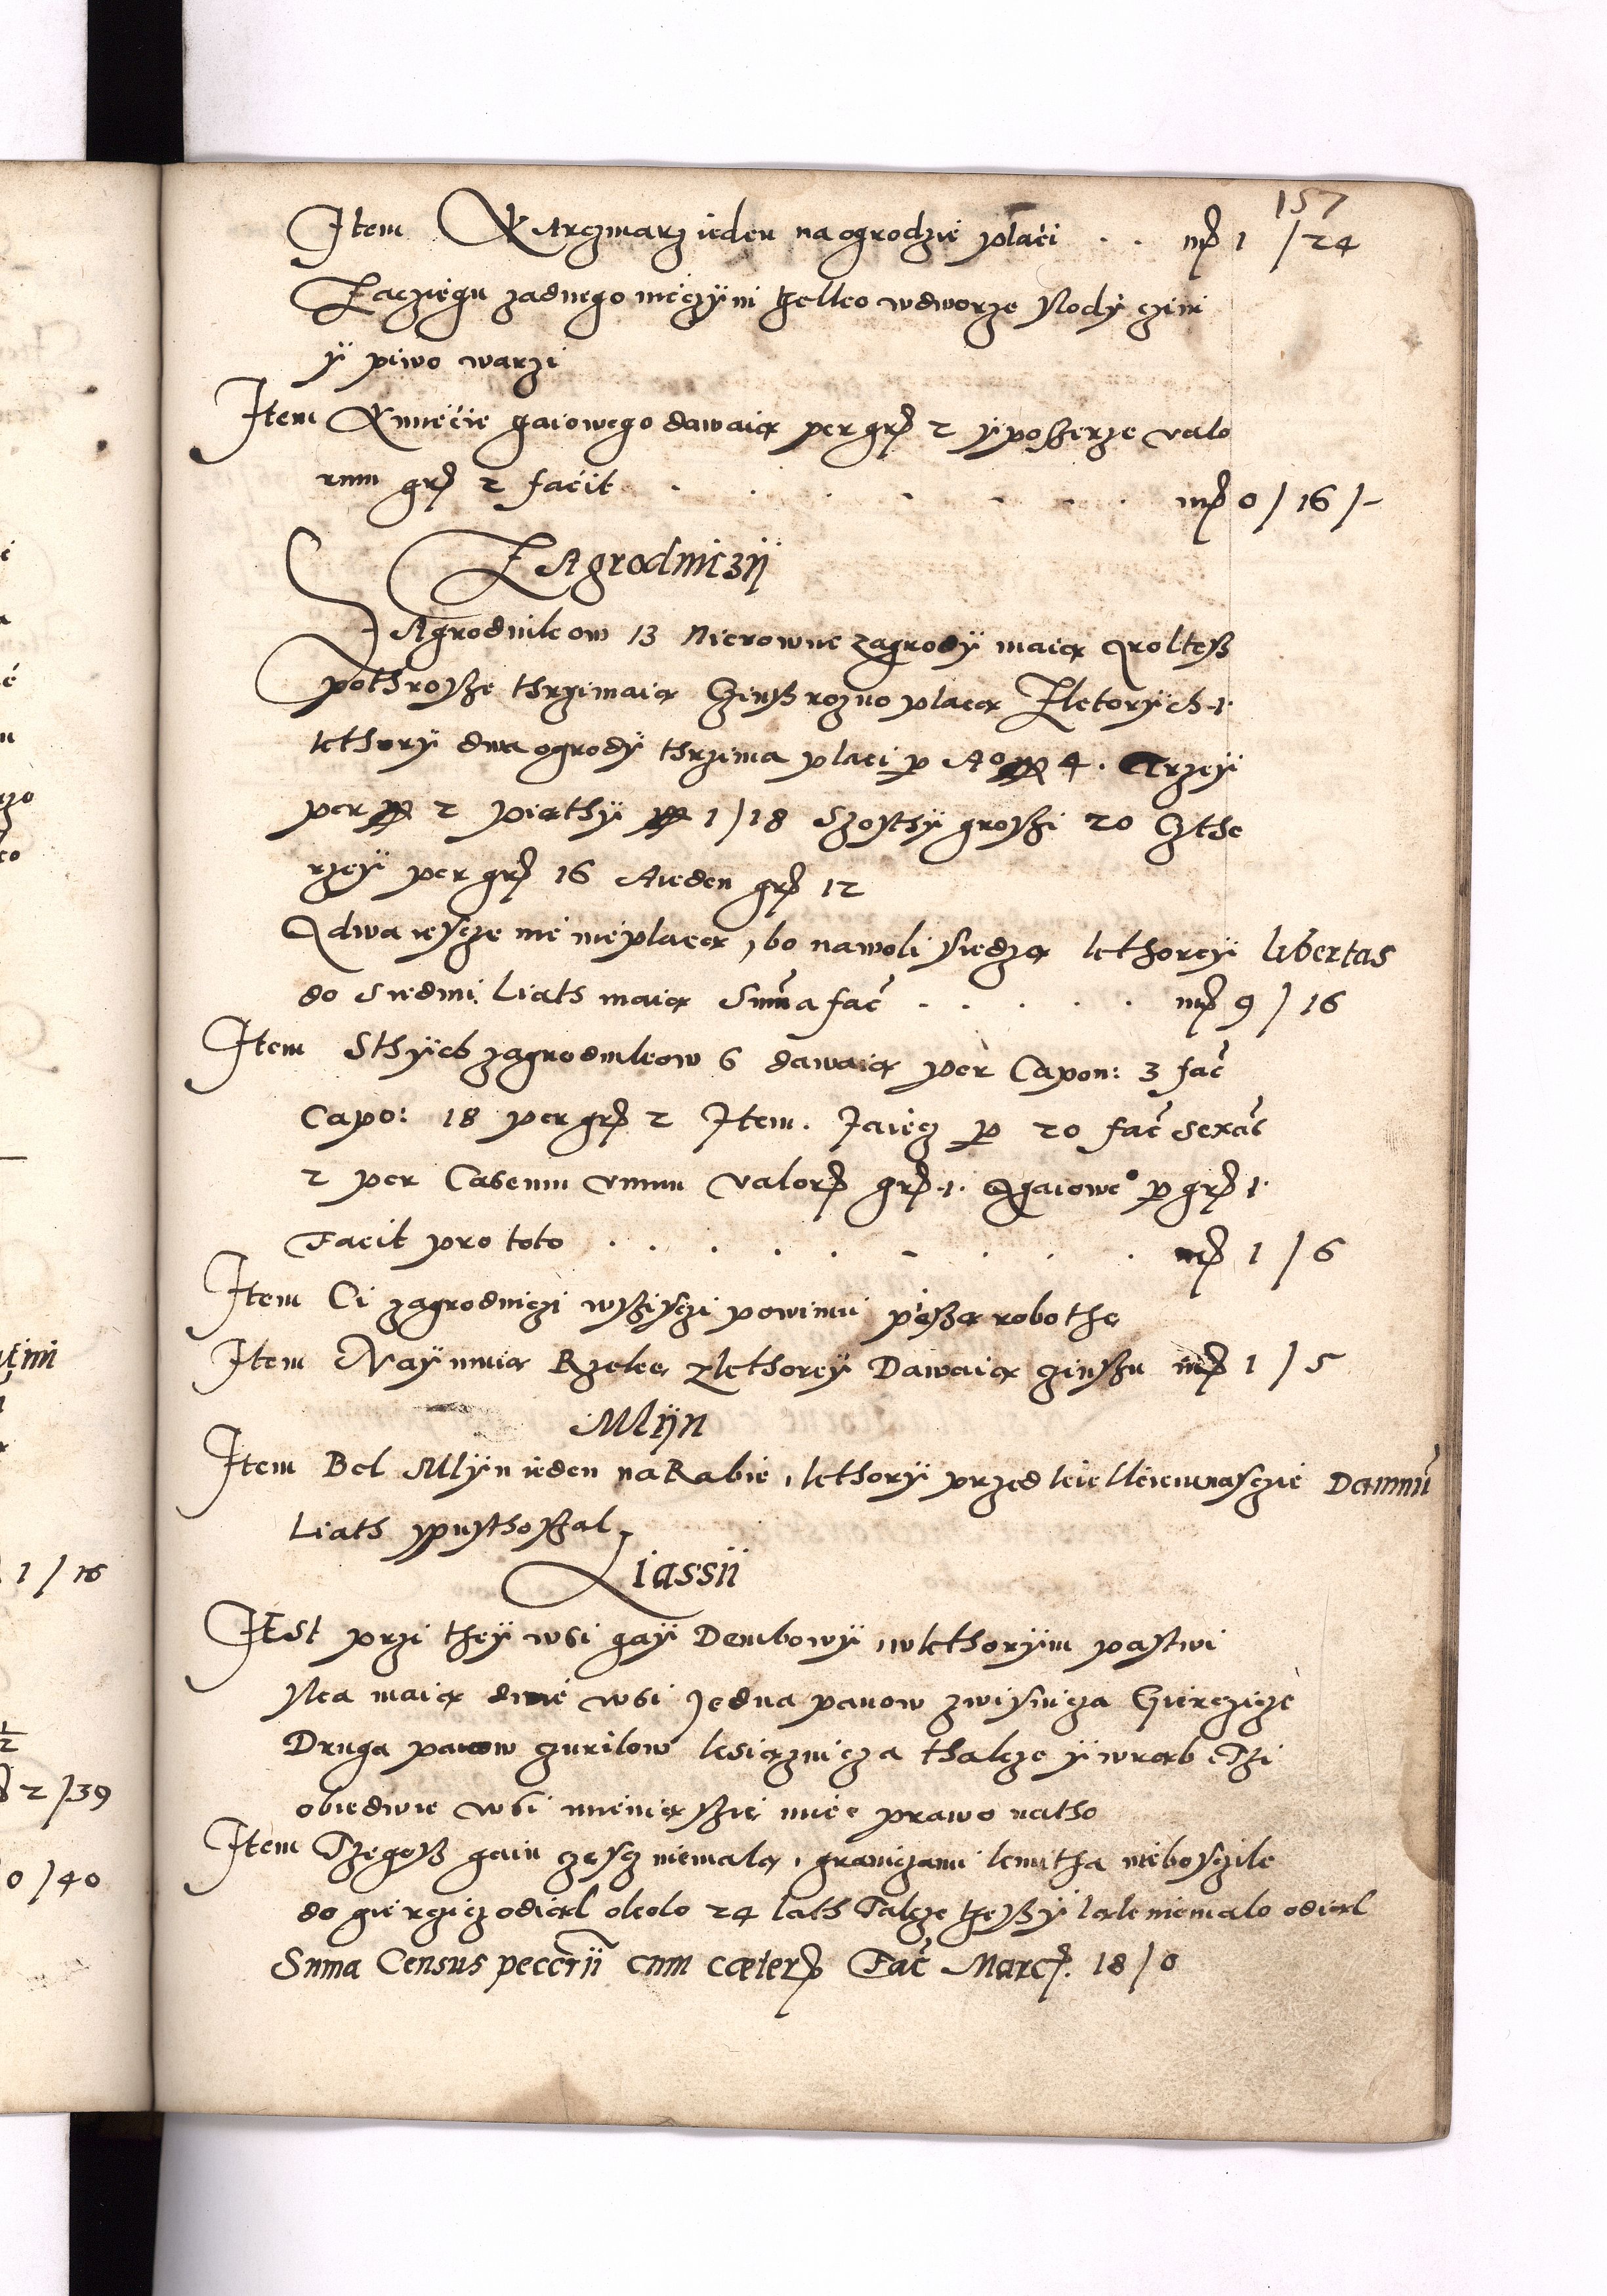 157
Item Karczmarz ieden na ogrodzie płaci . . mrc 1 / 24
Zaczięgu zadnego nieczÿni tÿlko wdworze słodÿ czini
ÿ piwo warzi
Item Kmiecie gaiowego dawaią per grs 2 ÿ po sserze valo
rum grs 2 facit . . . . . . . mrc 0 / 16 / -
ZAgrodniczÿ
ZAgrodnikow 13 Nierowne zagrodÿ maią A roliesz
pothrossze thrzimaią Czinsz rozno płacą Z ktorÿch .1.
kthorÿ dwa ogrodÿ thrzima płaci per Ao mrc 4. A trzeÿ
per mrc 2 piąthÿ mrc 1 / 18 Szosthÿ grosszi 20 Czthe
rzeÿ per grs 16 A ieden grs 12
A dwa iescze nie nie płacą, bo nawoli siedzą kthorzÿ libertas
do siedmi Liath maią Summa fac . . . . . mrc 9 / 16
Item Sthÿch zagrodnikow 6 dawaią per Capon: 3 fac
Capo: 18 per grs 2 Item. Jaiecz per 20 fac sexag
2 per Caseum vnum valor grs .1. A gaiowe° per grs 1.
Facit pro toto . . . . . . . . mrc 1 / 6
Item Ci zagrodniczi wsziszczi powinni pieszą robothę
Item Naÿmuią Rzekę zkthoreÿ Dawaią czinszu mrc 1 / 5
Mlÿn
Item Bel Mlÿn ieden na Rabie, kthorÿ przed kielkienasczie Damnū
Liath spusthoszal
Liassÿ
JEst przi theÿ wsi gaÿ Dembowÿ, wkthorÿm pastwi
ska maią dwie wsi Jedna panow zwisnicza Gierczicze
Druga panow zurilow ksiąznicza thakze ÿ wrąb A zi
obiedwie wsi mienią szie miec prawo natho
Item Tzegosz gaiu częscz niemalą, graniczami kmitha nieboszczik
do gierczicz odiąl okolo 24 lath Takze też sÿ ląk niemalo odiąl
Suma Census peccrÿ cum cæter Fac Marc. 18 / 0